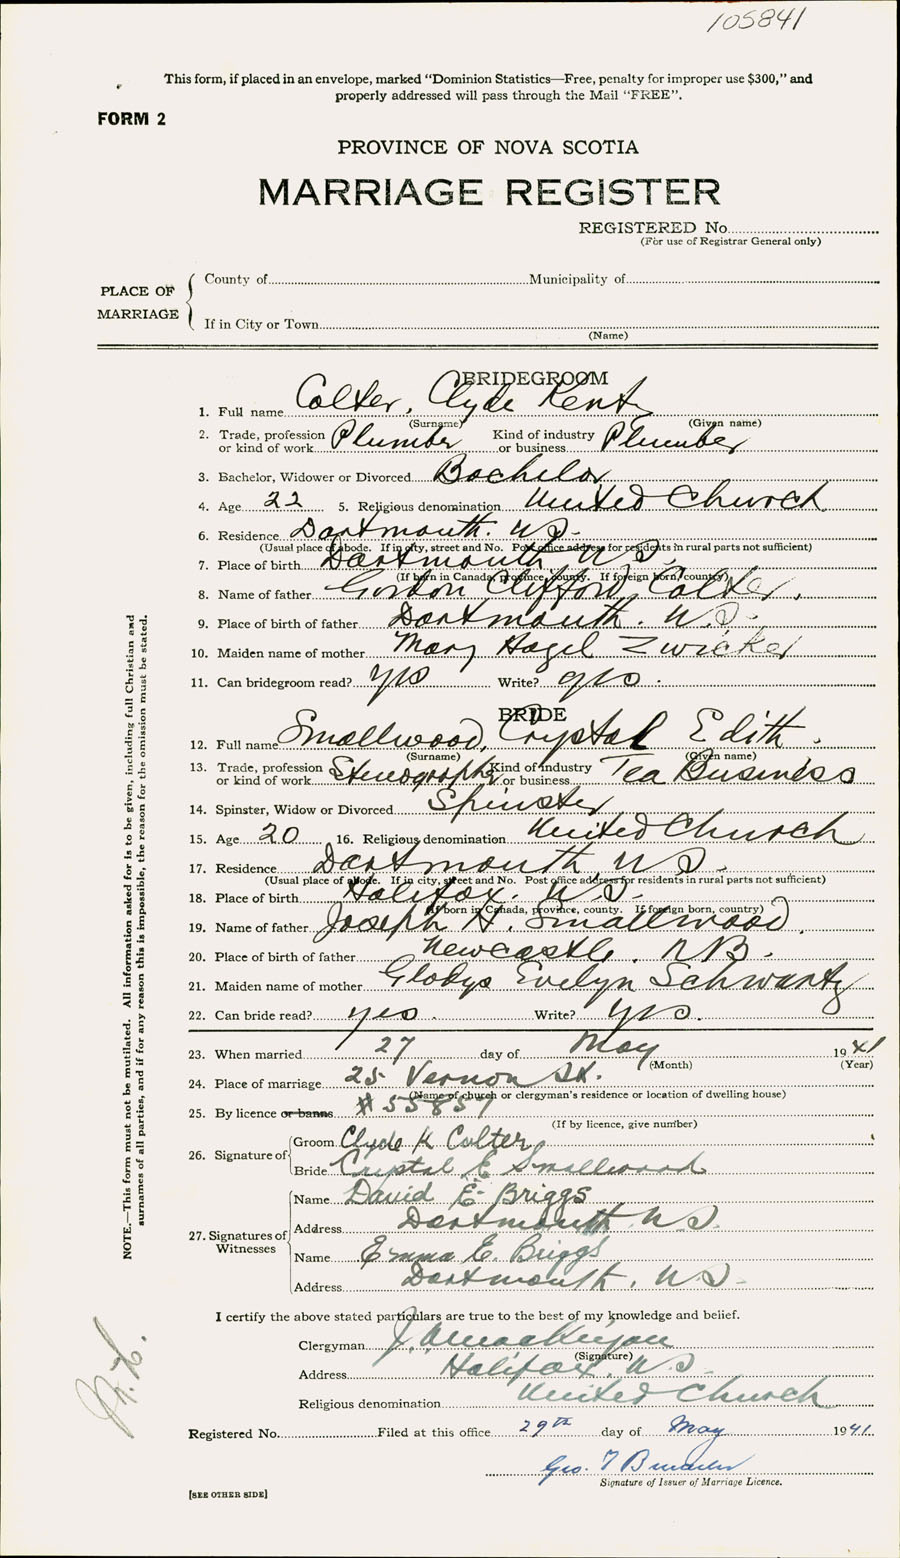 105841
This form, if placed in an envelope, marked “Dominion Statistics—Free, penalty for improper use $300,” and
properly addressed will pass through the Mail “FREE”.
FORM 2
PROVINCE OF NOVA SCOTIA
MARRIAGE REGISTER
REGISTERED No.
(For use of Registrar General only)
PLACE OF MARRIAGE
County of Municipality of
If in City or Town
(Name)
BRIDEGROOM
1. Full name Colter, Clyde Kent
(Surname) (Given name)
2. Trade, profession or kind of work Plumber Kind of industry or business Plumber
3. Bachelor, Widower or Divorced Bachelor
4. Age 22 5. Religious denomination United Church
6. Residence Dartmouth. N.S.
(Usual place of abode. If in city, street and No. Post office address for residents in rural parts not sufficient)
7. Place of birth Dartmouth N.S.
(If born in Canada, province, county. If foreign born, country)
8. Name of father Gordon Clifford Colter.
9. Place of birth of father Dartmouth. N.S.
10. Maiden name of mother Mary Hazel Zwicker
11. Can bridegroom read? yes Write? yes.
BRIDE
12. Full name Smallwood, Crystal Edith.
(Surname) (Given name)
13. Trade, profession or kind of work Stenographer Kind of industry or business Tea Business
14. Spinster, Widow or Divorced Spinster
15. Age 20 16. Religious denomination United Church
17. Residence Dartmouth, N.S.
(Usual place of abode. If in city, street and No. Post office address for residents in rural parts not sufficient)
18. Place of birth Halifax. N.S.
(If born in Canada, province, county. If foreign born, country)
19. Name of father Joseph H. Smallwood.
20. Place of birth of father Newcastle. N.B.
21. Maiden name of mother Gladys Evelyn Schwartz
22. Can bride read? yes. Write? yes.
23. When married 27 day of May 1941
(Month) (Year)
24. Place of marriage 25 Vernon St.
(Name of church or clergyman's residence or location of dwelling house)
25. By licence or banns # 55857
(If by licence, give number)
26. Signature of Groom Clyde K Colter
Bride Crystal E Smallwood
27. Signatures of Witnesses
Name David E. Briggs
Address Dartmouth N.S.
Name Emma E. Briggs
Address Dartmouth, N.S.
I certify the above stated particulars are true to the best of my knowledge and belief.
Clergyman
(Signature)
Address Halifax, N.S.
Religious denomination United Church
Registered No. Filed at this office 29th day of May 1941.
Geo. T
Signature of Issuer of Marriage Licence.
[SEE OTHER SIDE]
NOTE.—This form must not be mutilated. All information asked for is to be given, including full Christian and
surnames of all parties, and if for any reason this is impossible, the reason for the omission must be stated.